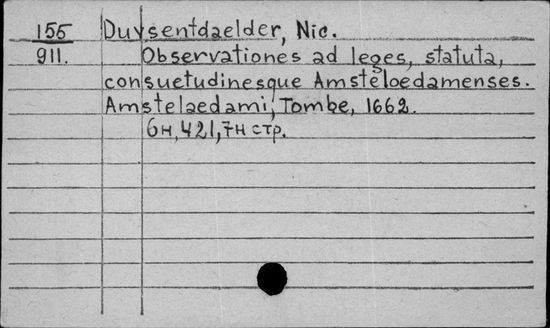 155 Duysentdaelder, Nic.
911. Observationes ad leges, statuta,
consuetudinesque Amsteloedamenses.
Amstelaedami, Tombe, 1662.
6н, 421, 7н стр.